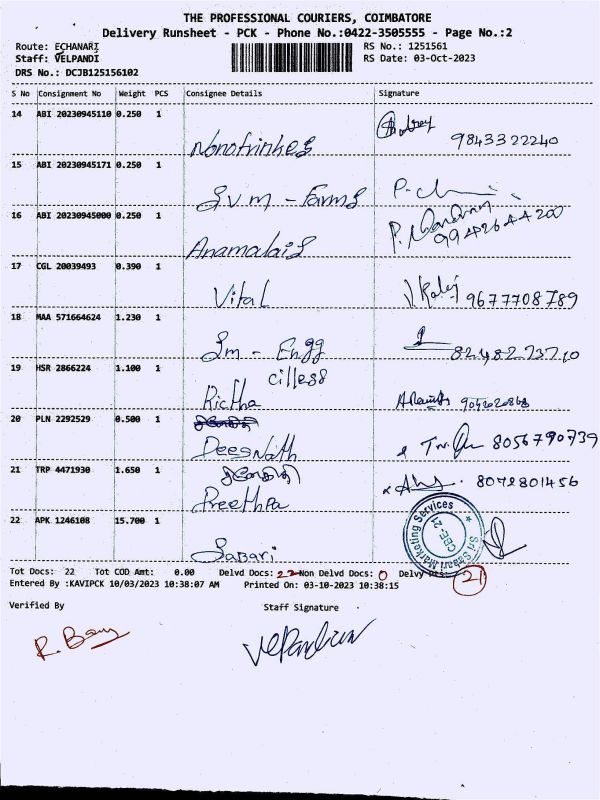 THE PROFESSIONAL COURIERS, COIMBATORE
Delivery Runsheet - PCK - Phone No.:0422-3505555 - Page No.:2
Route: ECHANARI
RS No.: 1251561
Staff: VELPANDI
RS Date: 03-Oct-2023
DRS No.: DCJB125156102
S No Consignment No Weight PCS Consignee Details Signature
14 ABI 20230945110 0.250 1
9843322240
15 ABI 20230945171 0.250 1
S.V.M - Farms
16 ABI 20230945000 0.250 1
Anamalais
9942644200
17 CGL 20039493 0.390 1
Vital
9677708789
18 MAA 571664624 1.230 1
Sm - Engg
19 HSR 2866224 1.100 1
Rictha
20 PLN 2292529 0.500 1
8056790739
21 TRP 4471930 1.650 1
8072801456
22 APK 1246108 15.700 1
Sabari
Sri Sabari Marketing Services
CBE-21
Tot Docs: 22 Tot COD Amt: 0.00 Delvd Docs: 22 Non Delvd Docs: 0 21
Entered By :KAVIPCK 10/03/2023 10:38:07 AM Printed On: 03-10-2023 10:38:15
Verified By Staff Signature